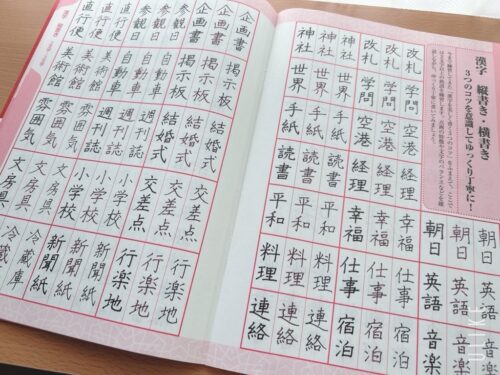 漢字 縦書き・横書き
3つのコツを意識してゆっくり丁寧に!
朝日 英語 音楽
朝日 英語 音楽
朝日 英語 音楽
改札 学問 空港 経理 幸福 仕事 宿泊
改札 学問 空港 経理 幸福 仕事 宿泊
改札 学問 空港 経理 幸福 仕事 宿泊
神社 世界 手紙 読書 平和 料理 連絡
神社 世界 手紙 読書 平和 料理 連絡
神社 世界 手紙 読書 平和 料理 連絡
企画書 掲示板 結婚式 交差点 行楽地
企画書 掲示板 結婚式 交差点 行楽地
企画書 掲示板 結婚式 交差点 行楽地
参観日 自動車 週刊誌 小学校 新聞紙
参観日 自動車 週刊誌 小学校 新聞紙
参観日 自動車 週刊誌 小学校 新聞紙
直行便 美術館 雰囲気 文房具 冷蔵庫
直行便 美術館 雰囲気 文房具 冷蔵庫
直行便 美術館 雰囲気